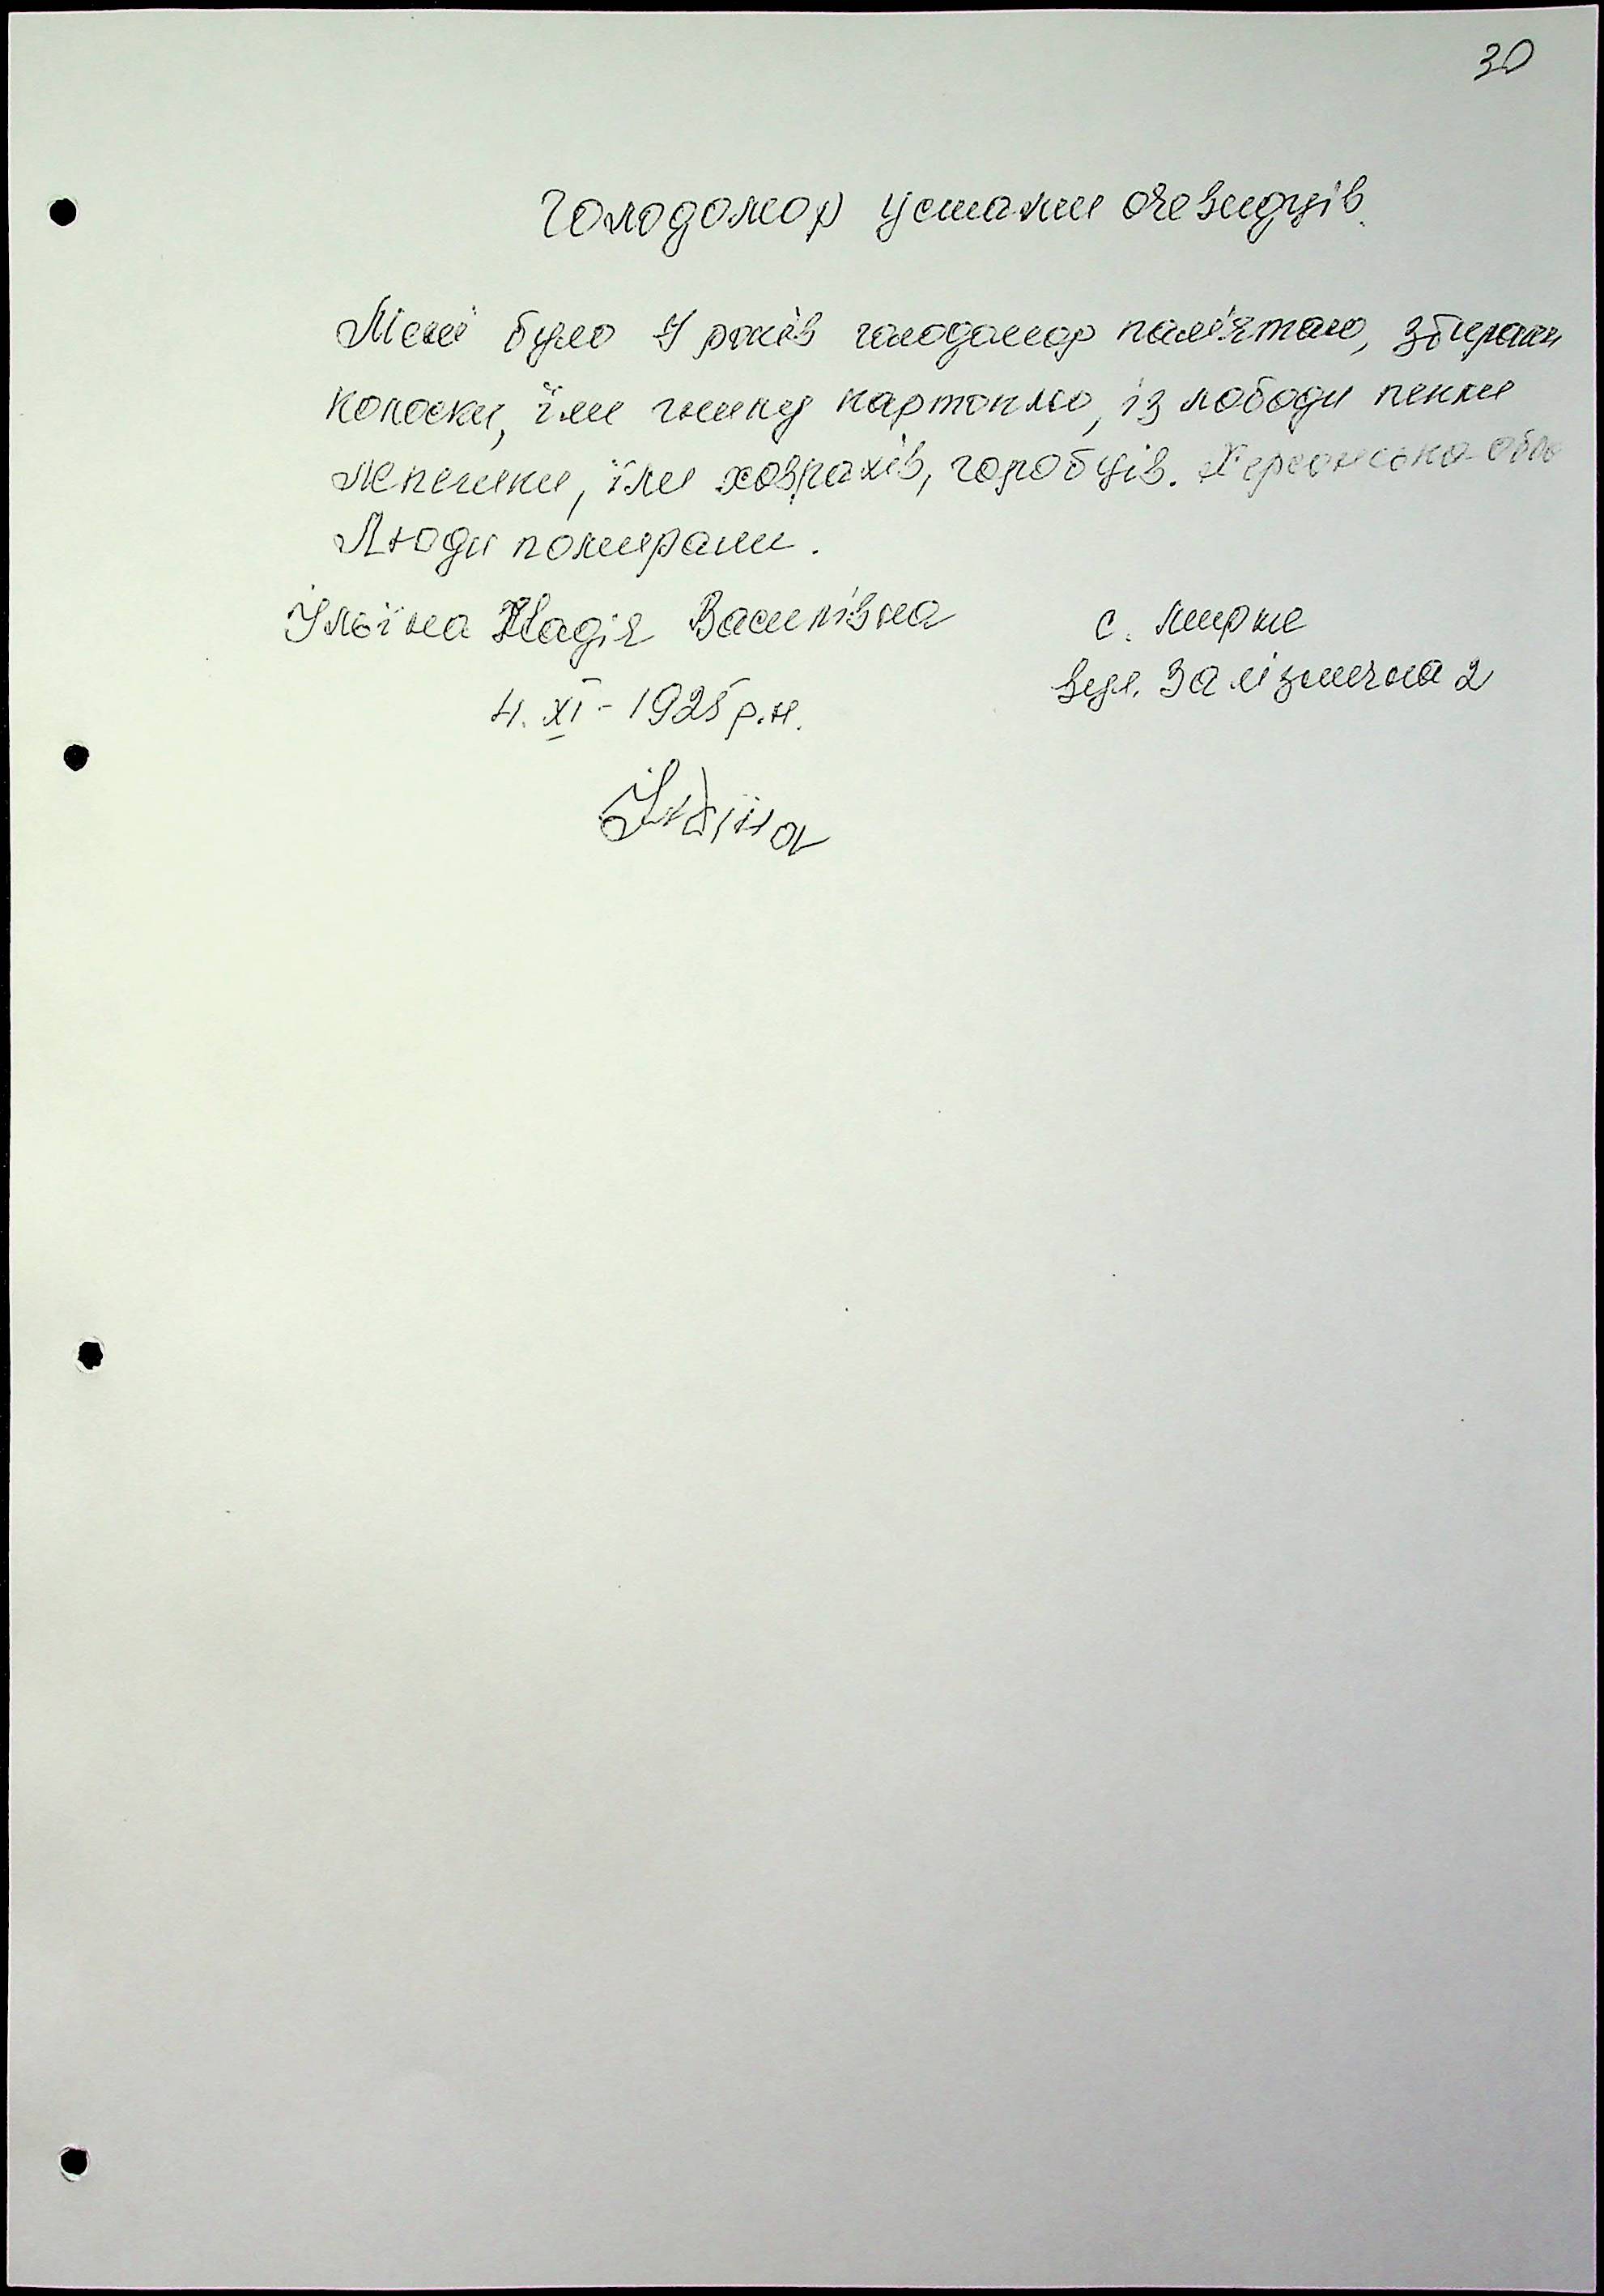 30
Голодомор устами очевидців.
Мені було 7 років голодомор пам'ятаю, збирали
колоски, їли гнилу картоплю, із лободи пекли
лепешки, їли ховрахів, горобців. Херсонська обл
Люди помирали.
Ільїна Надія Василівна
с. Мирне
вул. Залізнична 2
4. XI - 1925 р.н.
Ільїна